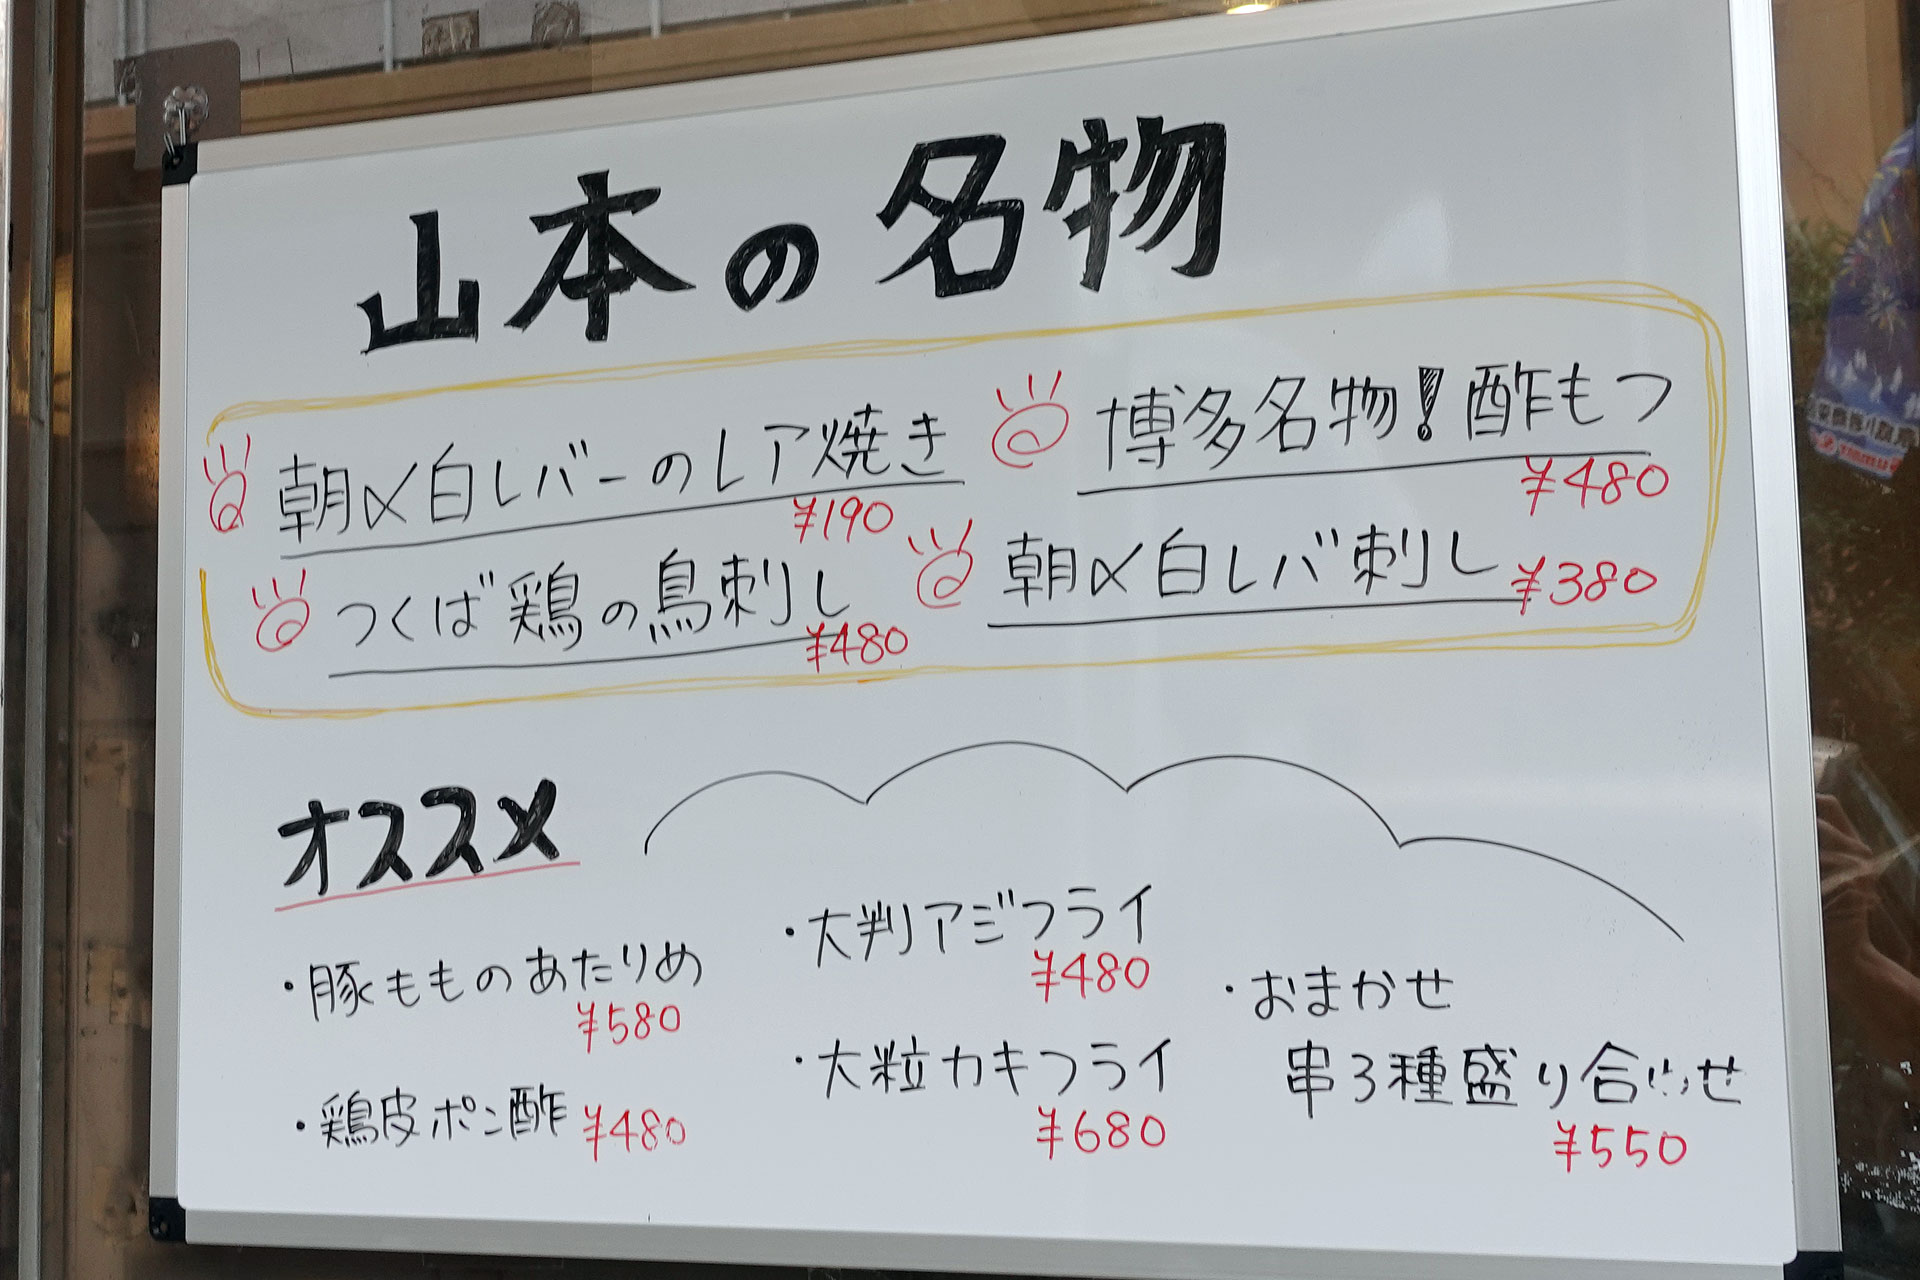 山本の名物
朝〆白レバーのレア焼き
¥190
博多名物!酢もつ
¥480
つくば鶏の鳥刺し
¥480
朝〆白レバ刺し ¥380
オススメ
・豚もものあたりめ
¥580
・鶏皮ポン酢 ¥480
・大判アジフライ
¥480
・大粒カキフライ
¥680
・おまかせ
串3種盛り合わせ
¥550